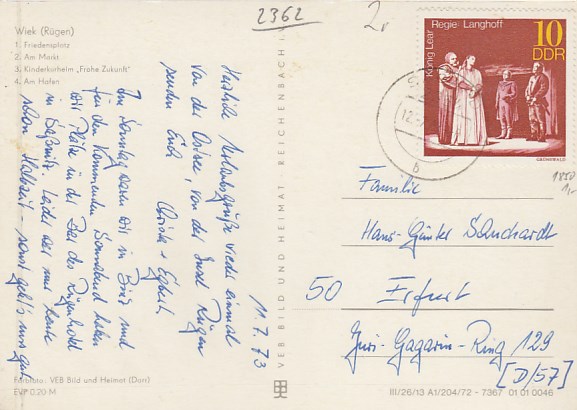 2362
2
Wiek (Rügen)
1. Friedensplatz
2. Am Markt
3. Kinderkurheim „Frohe Zukunft"
4. Am Hafen
11.7.73
Herzliche Urlaubsgrüße wieder einmal
von der Ostsee, von der Insel Rügen
senden Euch
Christa + Egbert
Am Sonntag waren wir in Binz und
für den kommenden Sonnabend haben
wir Plätze in der Bar des Rügenhotel
in Saßnitz. Leider ist nur heute
schon Halbzeit - sonst geht's uns gut
Farbfoto: VEB Bild und Heimat (Dori)
EVP 0,20 M
VEB BILD UND HEIMAT REICHENBACH i.
König Lear Regie: Langhoff
10
DDR
12
b
1850
1,-
Familie
Hans-Günter Sauchardt
50 Erfurt
Juri-Gagarin-Ring 129
[D/57]
III/26/13 A1/204/72 - 7367 01 01 0046